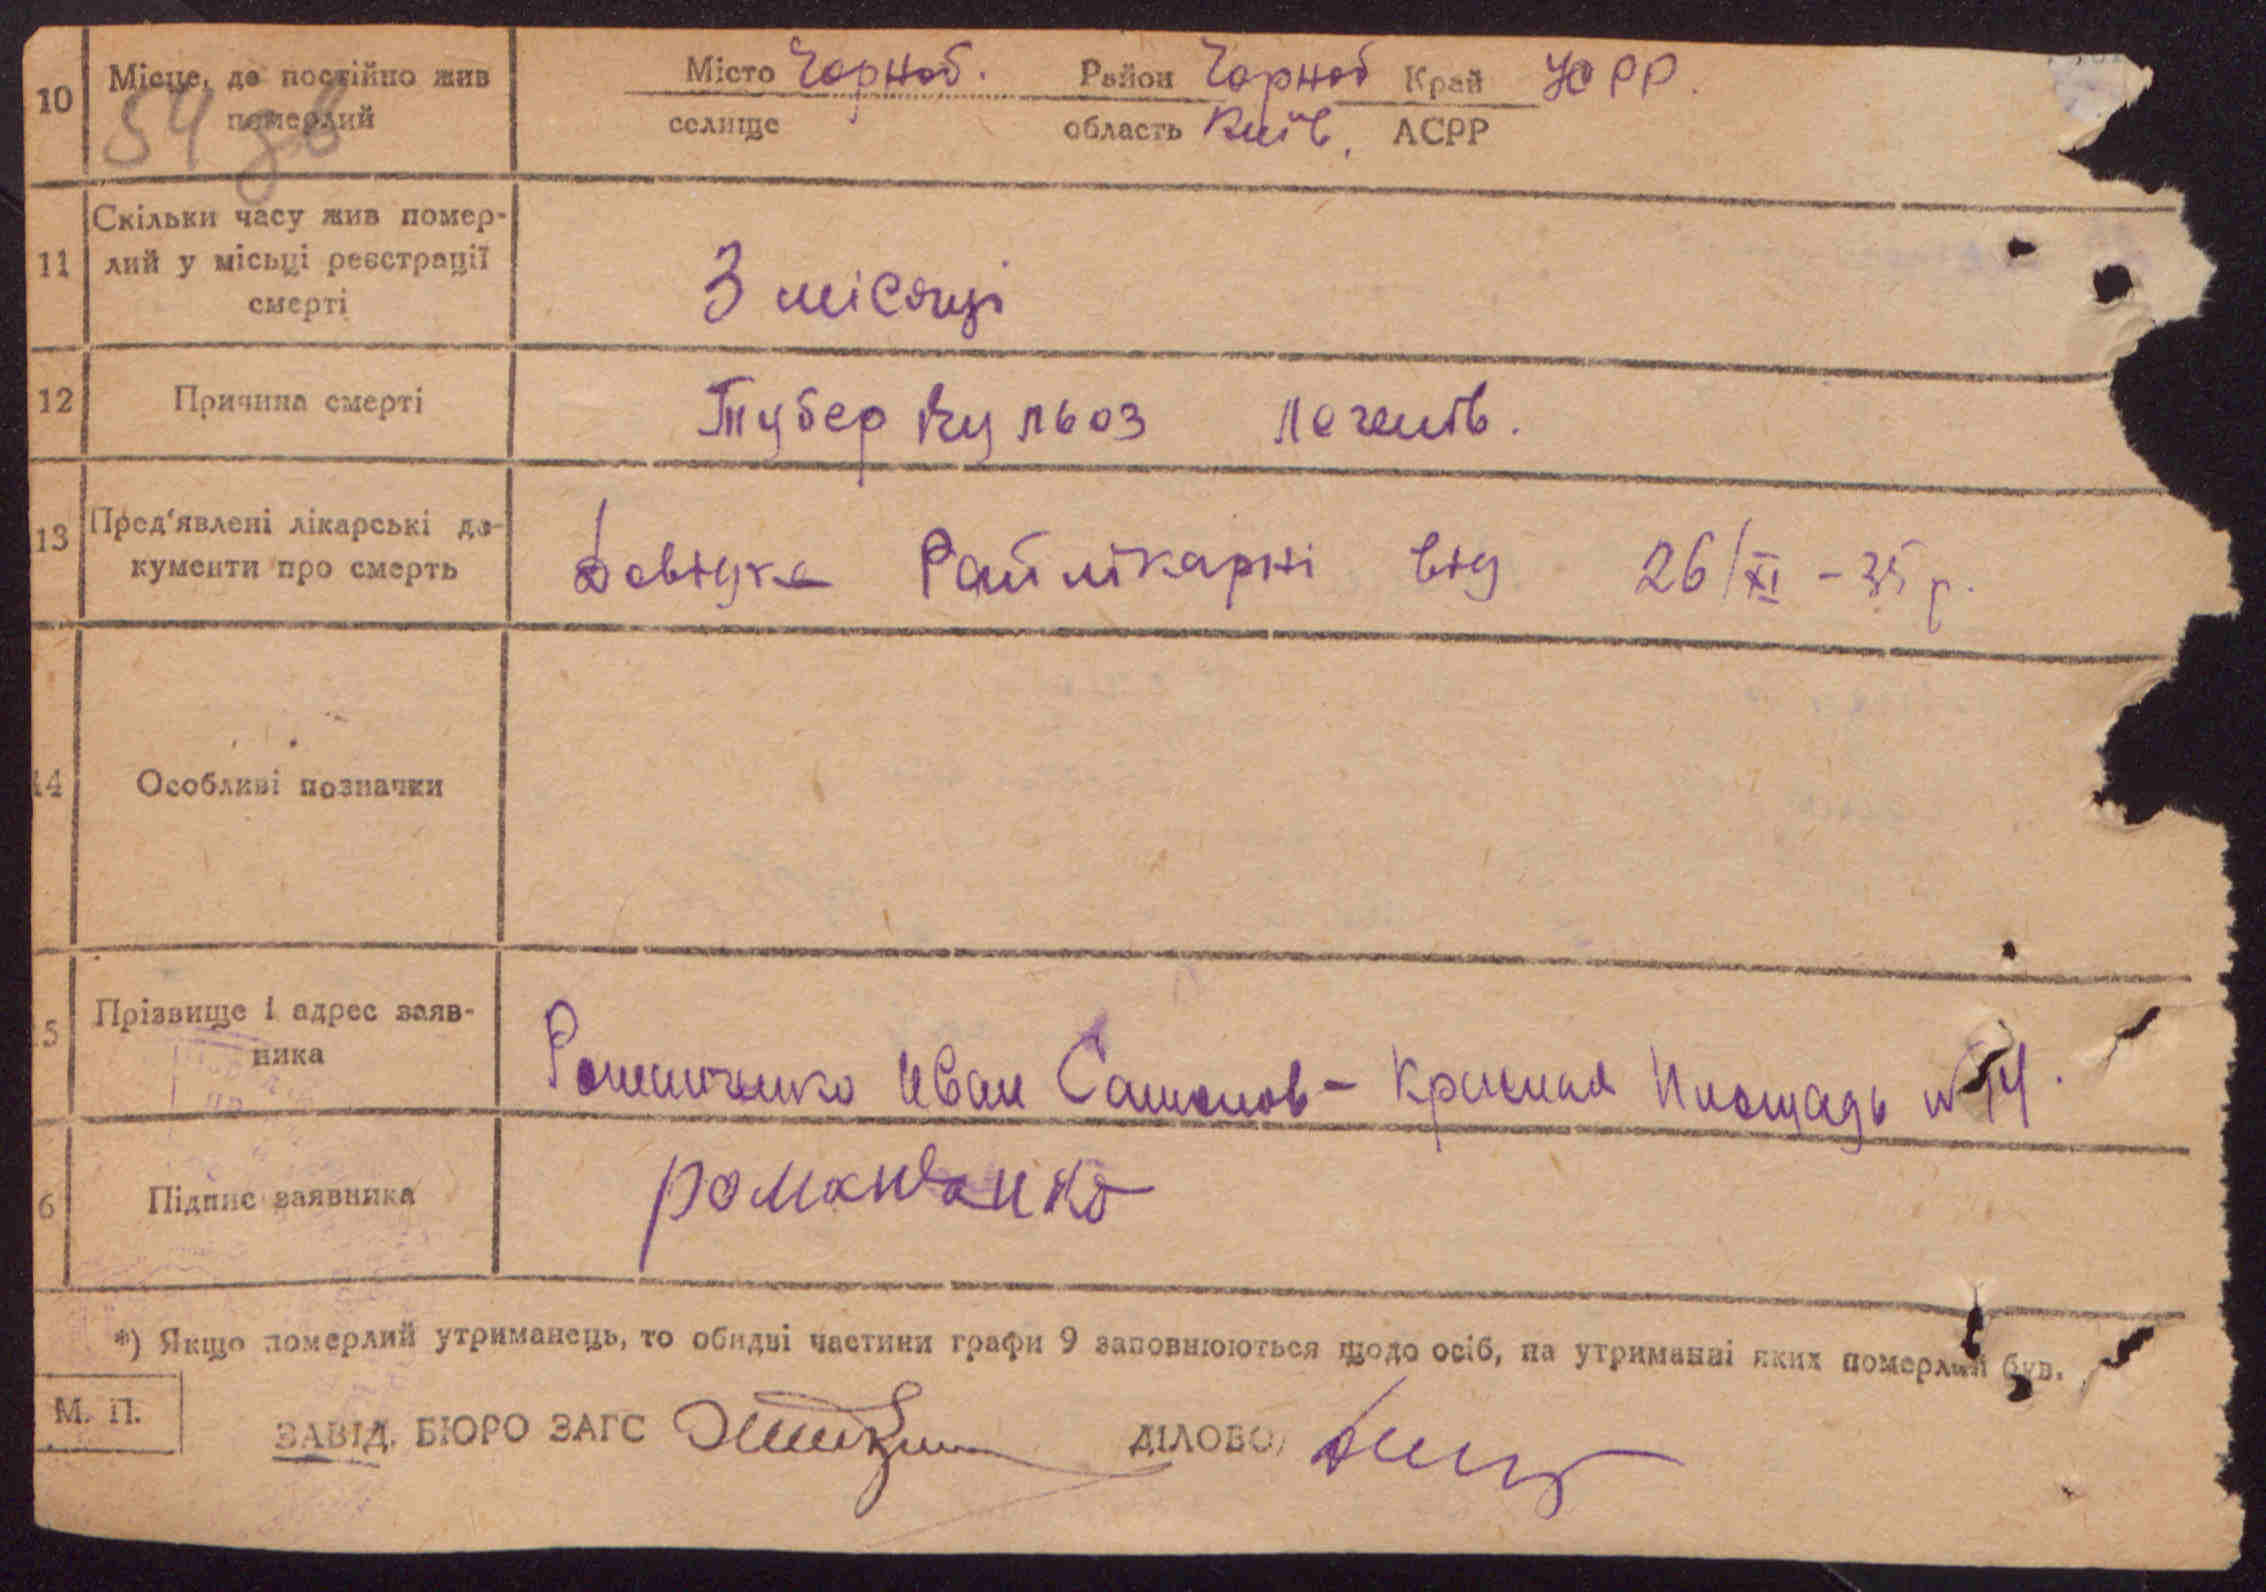 10 Місце, де постійно жив Місто Чорноб. Район Чорноб Край УСРР.
померлий селище область Київ. АСРР
54 зв
11 Скільки часу жив помер-
лий у місьці реєстрації 3 місяці
смерті
12 Причина смерті Туберкульоз легенів.
13 Пред'явлені лікарські до- Довідка Райлікарні від 26/XI - 35 р.
кументи про смерть
14 Особливі позначки
5 Прізвище і адрес заяв- Романченко Иван Самонов - Красная Площадь № 14.
ника
6 Підпис заявника романчанко
*) Якщо померлий утриманець, то обидві частини графи 9 заповнюються щодо осіб, на утриманні яких померлий був.
М. П.
ЗАВІД. БЮРО ЗАГС ДІЛОВОД